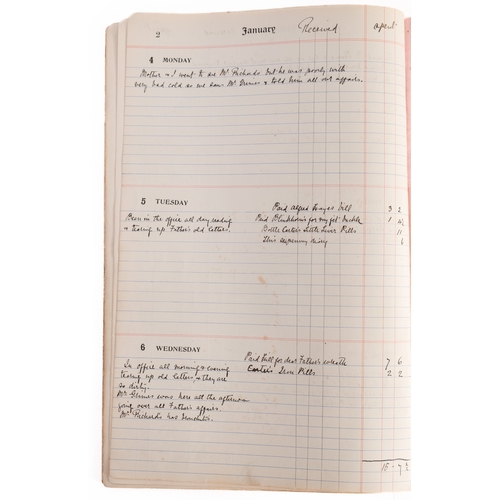 2 January Received spent
4 MONDAY
Mother & I went to see Mr Richards. but he was poorly with
very bad cold so we saw Mr Grimes & told him all our affairs.
5 TUESDAY
Been in the office all day, reading
& tearing up Father's old letters.
Paid Alfred Hayes bill 3 2
Paid for my jet buckle 1
Bottle Carter's Little Liver Pills 11
This diary 6
6 WEDNESDAY
In office all morning & evening
tearing up old letters, & they are
so dirty.
Mr Grimes was here all the afternoon
going over all Father's affairs.
Mr Richards has
Paid bill for dear Father's wreath 7 6
Pills 2 2
15 - 7